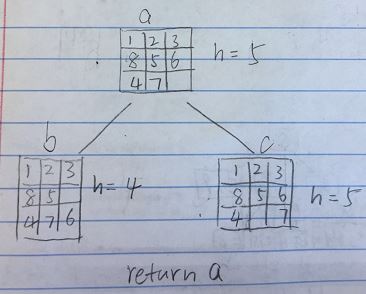 a
1 2 3
8 5 6
4 7
h=5
b
1 2 3
8 5
4 7 6
h=4
c
1 2 3
8 5 6
4 7
h=5
return a